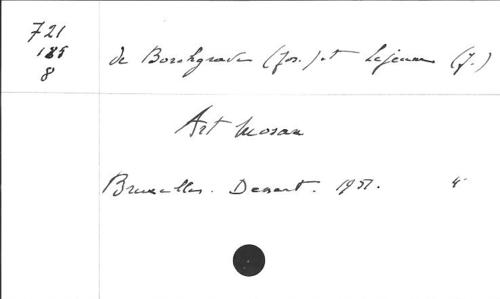 721
185
8
de Borchgrave (Jos.) et Lejeune (J.)
Art Mosan
Bruxelles. Dessart. 1951. 4°